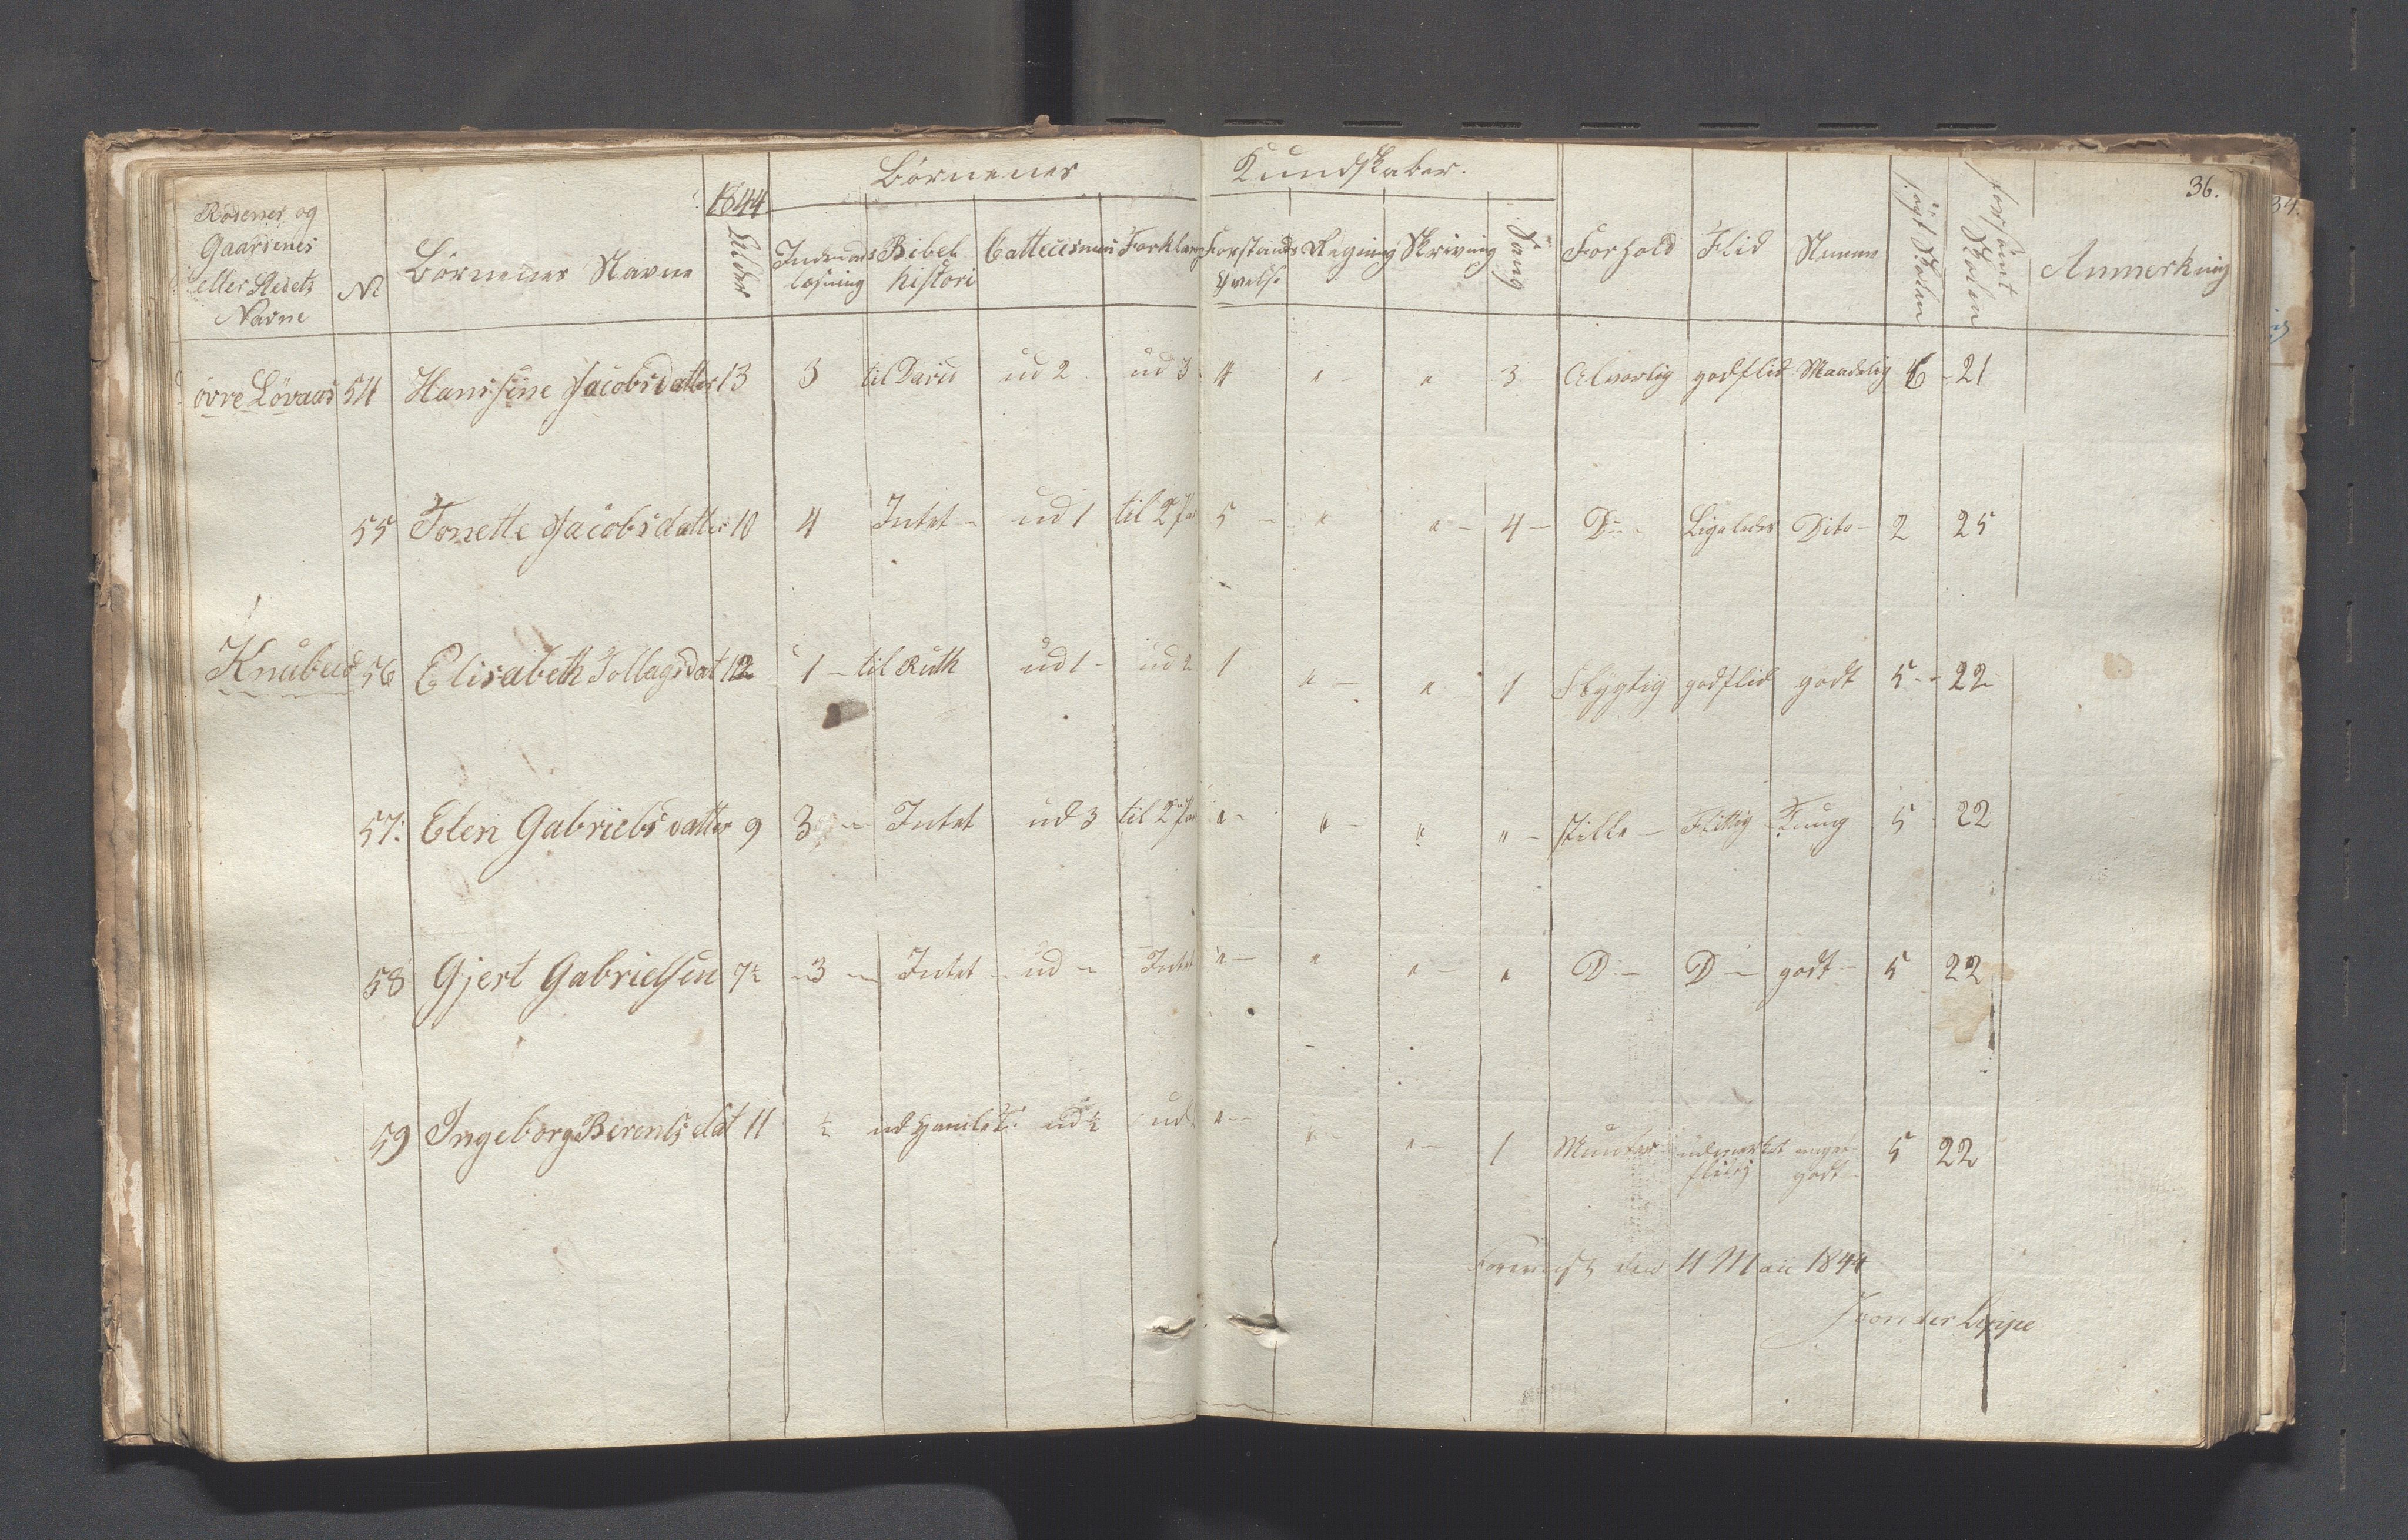 36.
1844
Børnenes Kundskaber.
Rodenes og Gaardenes eller Stedets Navne | No | Børnenes Navne | Alder | Indenadslæsning | Bibelhistori | Cattecismus | Forklaring | Forstands Øvelse | Regning | Skrivning | Sang | Forhold | Flid | Nemme | søgt Skolen | forsømt Skolen | Anmerkning
övre Lövaas 54 Hanssine Jacobsdatter 13 3 til David ud 2 ud 3 4 " " 3 Alvorlig god flid Maadelig 6 - 21
55 Tonette Jacobsdatter 10 4 Intet - ud 1 til 2 5 - " " - 4 - Do - Ligeledes Dito - 2 25
Knubed 56 Elisabeth Tollagsdat 12 1 - til Ruth ud 1 - ud 2 1 " - " 1 Flygtig godflid godt 5 - 22
57: Elen Gabrielsdatter 9 3 - Intet ud 3 til 2 " - " - " " - stille - Flittig Tung 5 22
58 Gjert Gabrielsen 7½ 3 - Intet - ud - Intet " - " " - " D - D - godt - 5 22
59 Ingeborg Berentsdat 11 ½ ud ud ½ ud " - " - " - 1 Munter udmerket flitig meget godt 5 22
den 11 Maii 1844